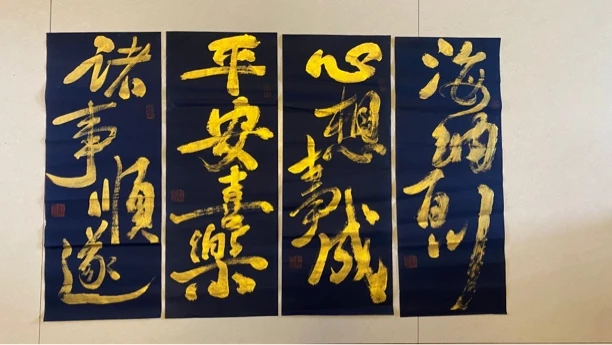 海纳百川
心想事成
平安喜樂
诸事順遂